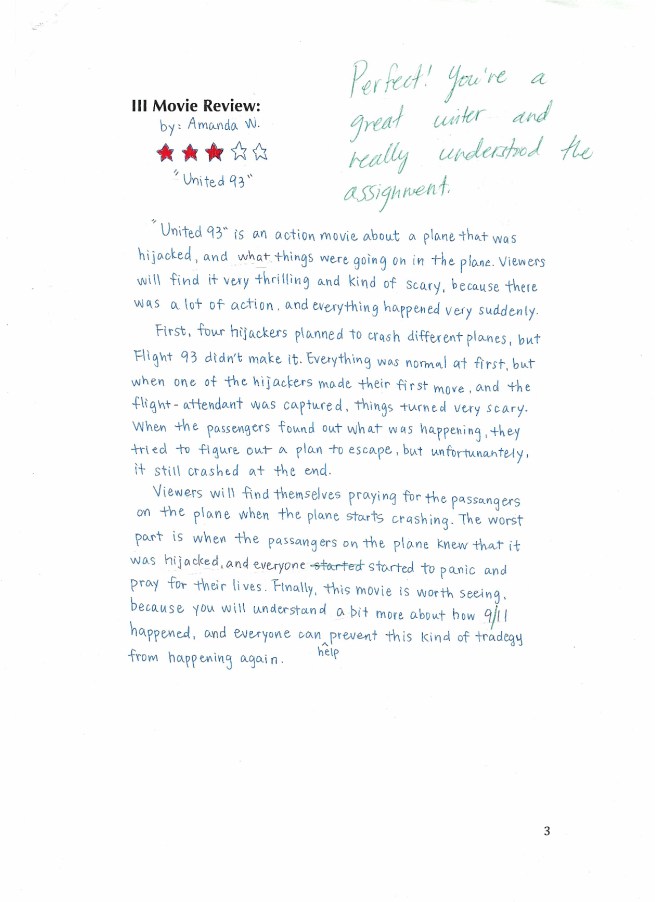 Perfect! You're a
great writer and
really understood the
assignment.
III Movie Review:
by: Amanda W.
"United 93"
"United 93" is an action movie about a plane that was
hijacked, and what things were going on in the plane. Viewers
will find it very thrilling and kind of scary, because there
was a lot of action, and everything happened very suddenly.
First, four hijackers planned to crash different planes, but
Flight 93 didn't make it. Everything was normal at first, but
when one of the hijackers made their first move, and the
flight-attendant was captured, things turned very scary.
When the passengers found out what was happening, they
tried to figure out a plan to escape, but unfortunantely,
it still crashed at the end.
Viewers will find themselves praying for the passangers
on the plane when the plane starts crashing. The worst
part is when the passangers on the plane knew that it
was hijacked, and everyone started started to panic and
pray for their lives. Finally, this movie is worth seeing,
because you will understand a bit more about how 9/11
happened, and everyone can help prevent this kind of tradegy
from happening again.
3